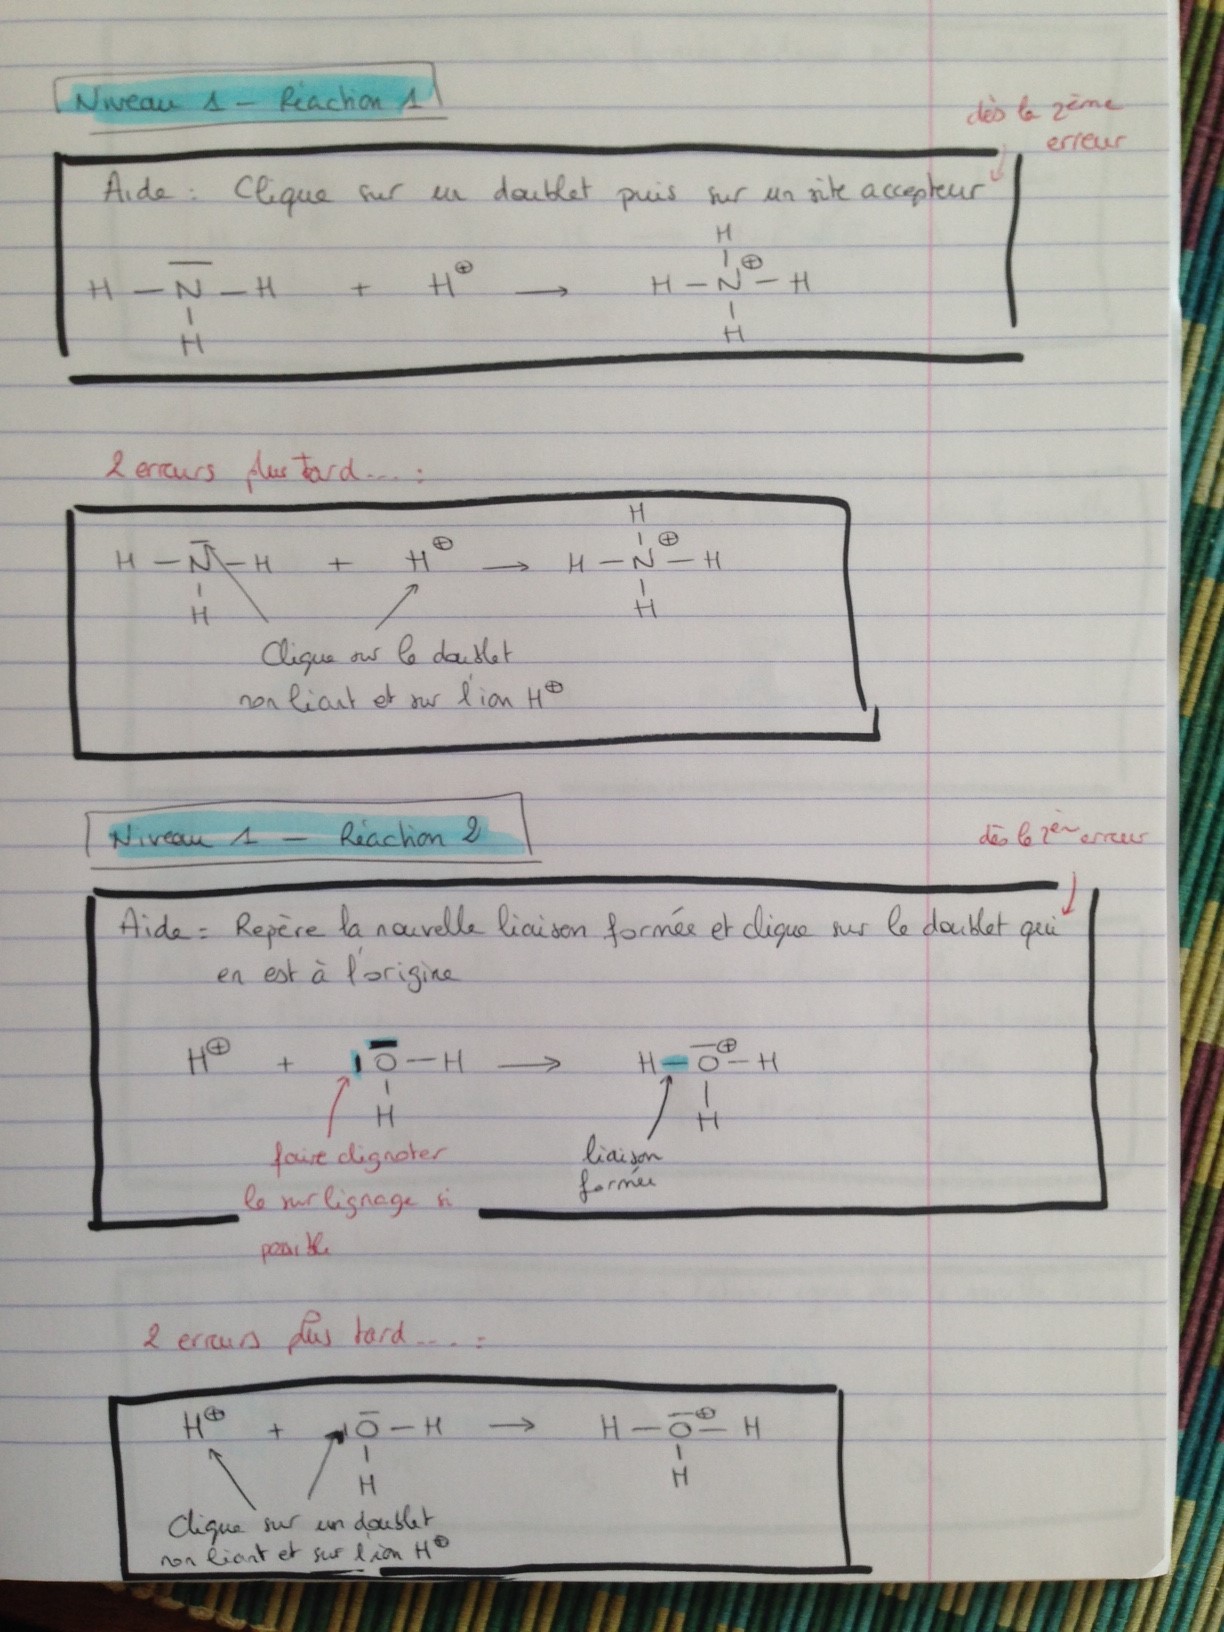 Niveau 1 - Réaction 1
dès la 2ème
erreur
Aide : Clique sur un doublet puis sur un site accepteur
H
H — N — H + H⊕ → H — N⊕ — H
H H
2 erreurs plus tard.... :
H
H — N — H + H⊕ → H — N⊕ — H
H H
Clique sur le doublet
non liant et sur l'ion H⊕
Niveau 1 - Réaction 2
dès la 2èm erreur
Aide : Repère la nouvelle liaison formée et clique sur le doublet qui
en est à l'origine
H⊕ + O — H → H — O⊕ — H
H H
faire clignoter
le surlignage si
possible
liaison
formée
2 erreurs plus tard.... :
H⊕ + O — H → H — O⊕ — H
H H
Clique sur un doublet
non liant et sur l'ion H⊕